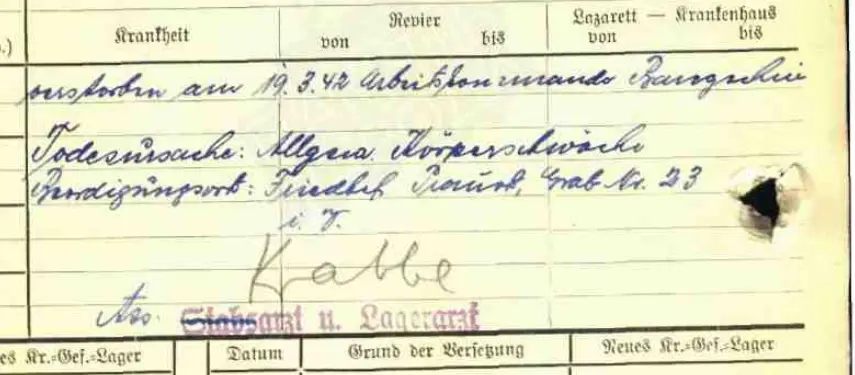 Krankheit
Revier
von bis
Lazarett — Krankenhaus
von bis
verstorben am 19.3.42 Arbeitskommando
Todesursache: Allgem. Körperschwäche
Beerdigungsort: Friedhof Praust, Grab Nr. 23
i. V.
Krabbe
Ass. Stabsarzt u. Lagerarzt
es Kr.=Gef.=Lager
Datum
Grund der Versetzung
Neues Kr.=Gef.=Lager